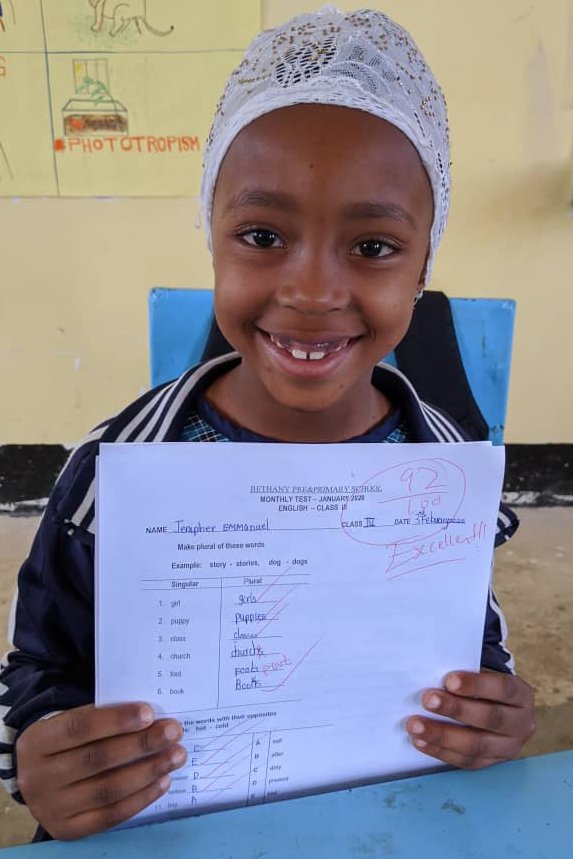 #PHOTOTROPISM
BETHANY PRE&PRIMARY SCHOOL
MONTHLY TEST – JANUARY 2020
ENGLISH – CLASS III
92
100
Excellent!!
NAME Jenipher EMMANUEL CLASS III DATE
Make plural of these words
Example: story - stories, dog - dogs
Singular Plural
1. girl girls
2. puppy puppies
3. class classes
4. church
5. foot
6. book Books
the words with their opposites
hot - cold
C A
E B after
D C dirty
B D present
11. A E